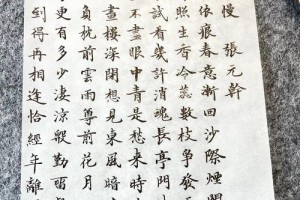 慢 張元幹
依痕春意漸回沙際煙闊
照生香冷蕊數枝爭發
試看幾許消魂長亭門
不盡眼中青是愁來時
畫樓深閉想見東風暗
負枕前雲雨尊前花月
更有多少淒涼殷勤留
到得再相逢恰經年離